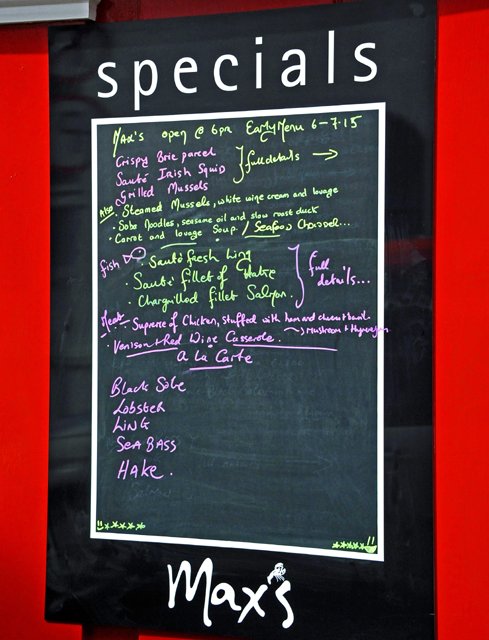 specials
Max's open @ 6pm Early Menu 6-7.15
Crispy Brie parcel
Sauté Irish Squid } full details →
Grilled Mussels
Also • Steamed Mussels, white wine cream and lovage
• Soba Noodles, seasame oil and slow roast duck
• Carrot and lovage Soup / Seafood Chowder...
fish • Sauté fresh Ling
• Sauté fillet of Hake } full details...
• Chargrilled fillet Salmon.
Meat - Supreme of Chicken, stuffed with ham and cheese + basil
• Venison + Red Wine Casserole. → Mushroom +
A La Carte
Black Sole
Lobster
Ling
Sea Bass
Hake.
Max's